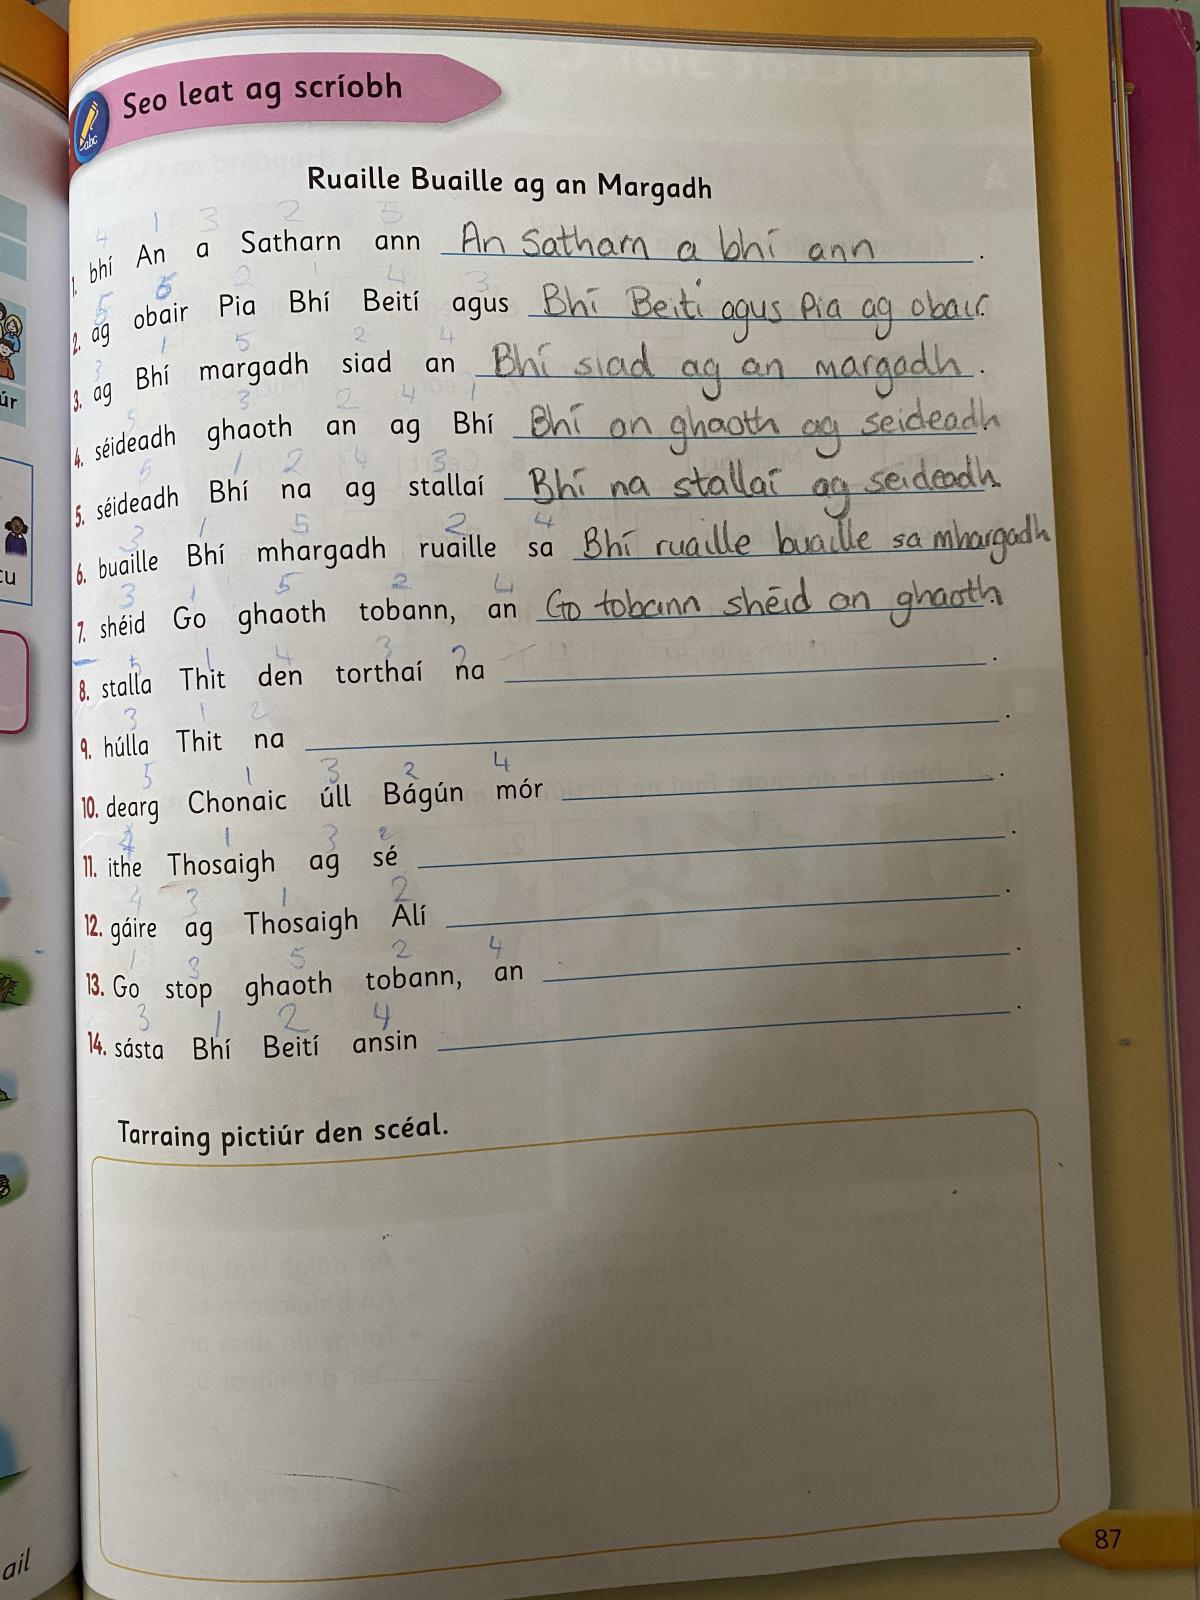 abc
Seo leat ag scríobh
Ruaille Buaille ag an Margadh
4 1 3 2 5
1. bhí An a Satharn ann An Satharn a bhí ann .
5 6 2 1 4 3
2. ag obair Pia Bhí Beití agus Bhí Beití agus Pia ag obair.
3 1 5 2 4
3. ag Bhí margadh siad an Bhí siad ag an margadh .
5 3 2 4 1
4. séideadh ghaoth an ag Bhí Bhí an ghaoth ag seideadh
5 1 2 4 3
5. séideadh Bhí na ag stallaí Bhí na stallaí ag seideadh
3 1 5 2 4
6. buaille Bhí mhargadh ruaille sa Bhí ruaille buaille sa mhargadh
3 1 5 2 4
7. shéid Go ghaoth tobann, an Go tobann shéid an ghaoth
5 1 4 3 2
8. stalla Thit den torthaí na .
3 1 2
9. húlla Thit na .
5 1 3 2 4
10. dearg Chonaic úll Bágún mór .
4 1 3 2
11. ithe Thosaigh ag sé .
4 3 1 2
12. gáire ag Thosaigh Alí .
1 3 5 2 4
13. Go stop ghaoth tobann, an .
3 1 2 4
14. sásta Bhí Beití ansin .
Tarraing pictiúr den scéal.
87
úr
cu
ail